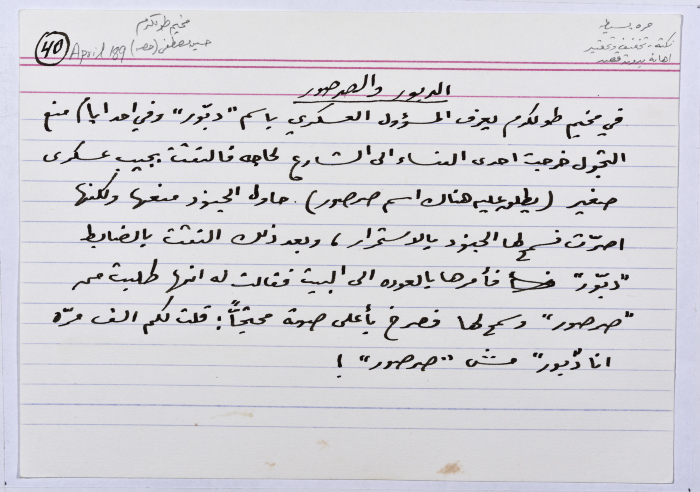 مخيم طولكرم
حسين مصطفى (قصه)
40
April /89
مره بسيطه
نكته، تخفيف وتحقير
اهانة بدون قصد
الدبور والصرصور
في مخيم طولكرم يعرف المسؤول العسكري باسم "دبّور" وفي احد ايام منع
التجول خرجت احدى النساء الى الشارع لحاجه فالتقت بجيب عسكري
صغير (يطلق عليه هناك اسم صرصور). حاول الجنود منعها ولكنها
اصرّت فسمح لها الجنود بالاستمرار، وبعد ذلك التقت بالضابط
"دبّور" فأمرها بالعوده الى البيت فقالت له انها طلبت من
"صرصور" وسمح لها فصرخ بأعلى صوته محتجّاً: قلت لكم الف مرّه
انا "دبّور" مش "صرصور"!